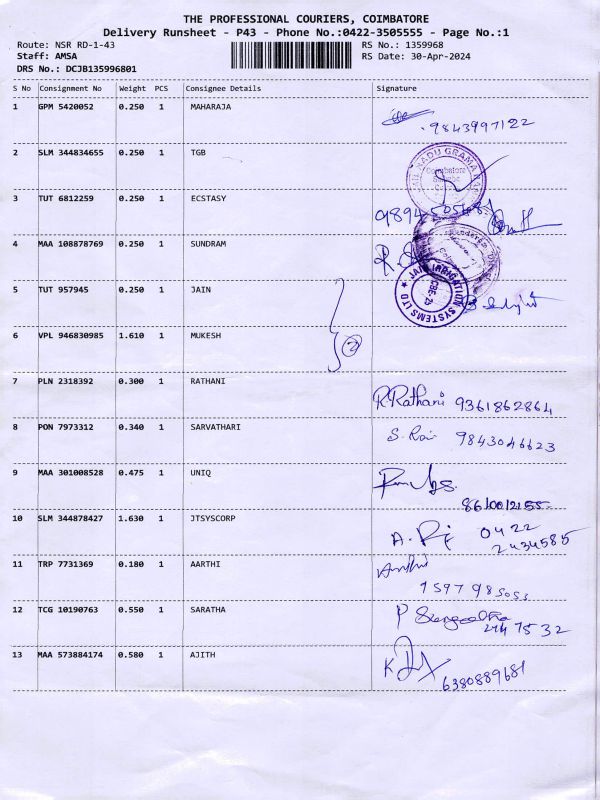 THE PROFESSIONAL COURIERS, COIMBATORE
Delivery Runsheet - P43 - Phone No.:0422-3505555 - Page No.:1
Route: NSR RD-1-43 RS No.: 1359968
Staff: AMSA RS Date: 30-Apr-2024
DRS No.: DCJB135996801
S No Consignment No Weight PCS Consignee Details Signature
1 GPM 5420052 0.250 1 MAHARAJA
9843997122
2 SLM 344834655 0.250 1 TGB
3 TUT 6812259 0.250 1 ECSTASY
4 MAA 108878769 0.250 1 SUNDRAM
5 TUT 957945 0.250 1 JAIN
JAIN IRRIGATION SYSTEMS LTD
CBE-25
6 VPL 946830985 1.610 1 MUKESH
2
7 PLN 2318392 0.300 1 RATHANI
R.Rathani 9361862864
8 PON 7973312 0.340 1 SARVATHARI
S. Rai 9843046623
9 MAA 301008528 0.475 1 UNIQ
10 SLM 344878427 1.630 1 JTSYSCORP
0422
2434585
11 TRP 7731369 0.180 1 AARTHI
12 TCG 10190763 0.550 1 SARATHA
13 MAA 573884174 0.580 1 AJITH
6380889681